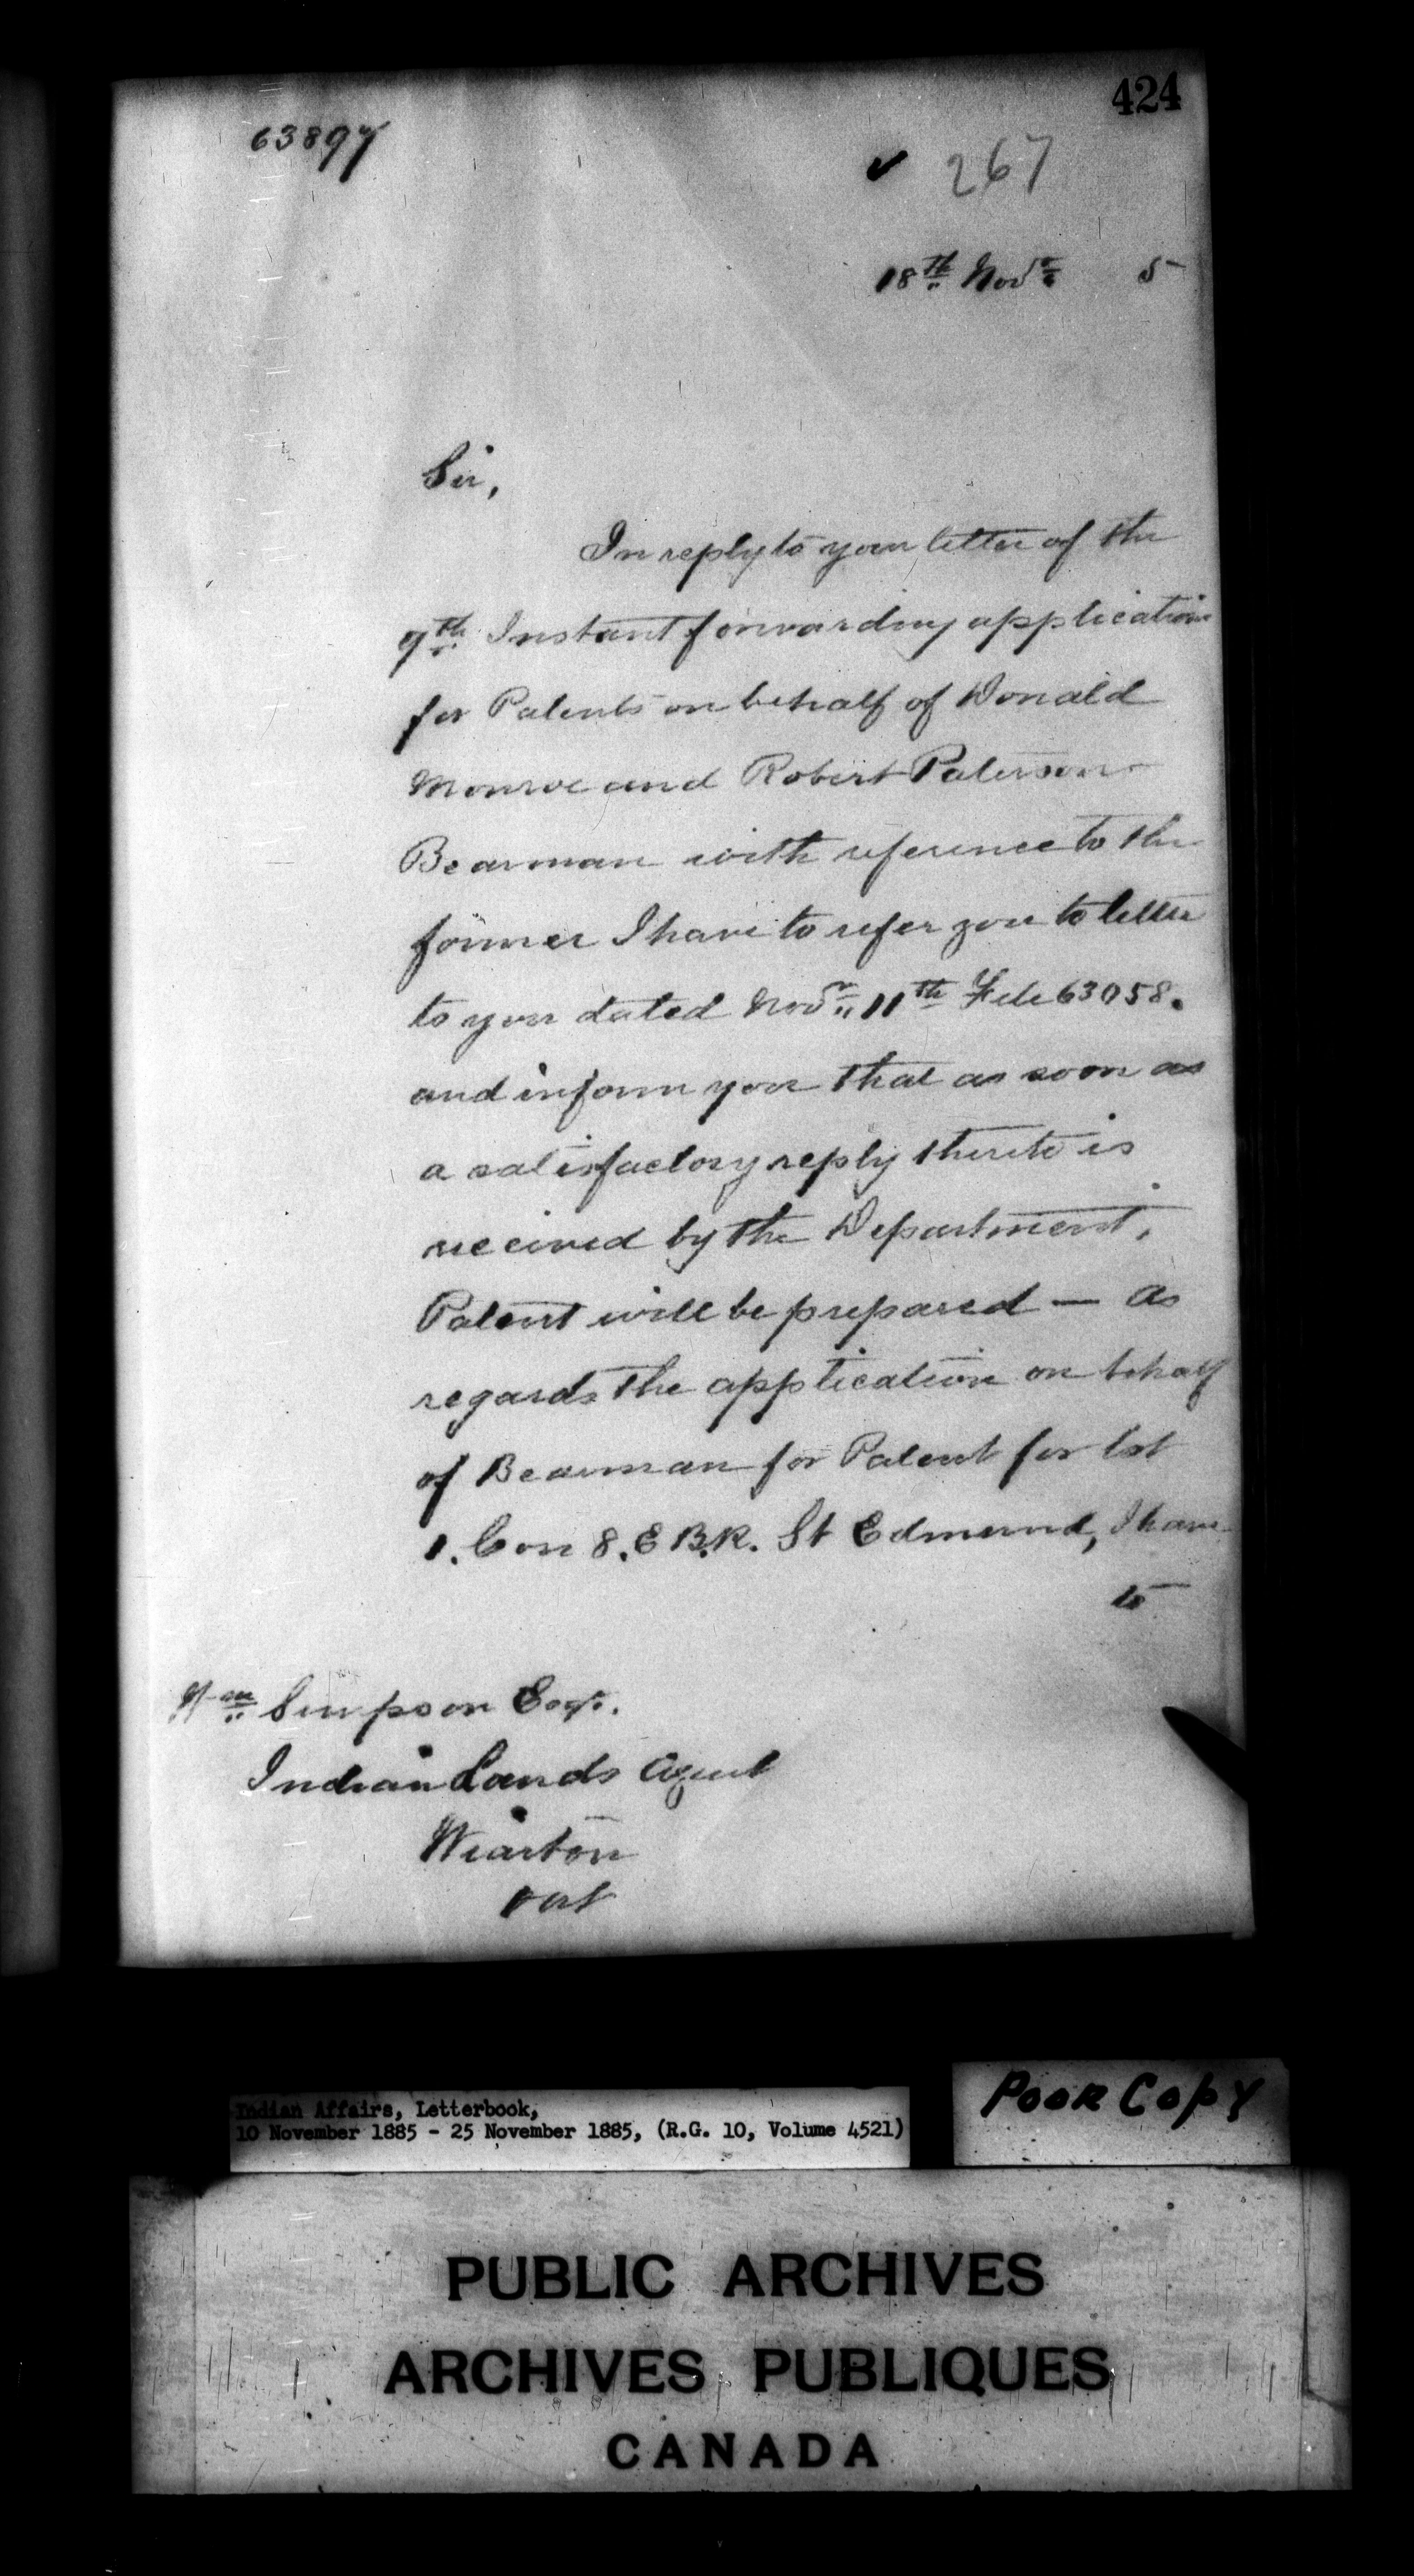 424
63897
✓ 267
18th Novr 5
Sir,
In reply to your letter of the
9th Instant forwarding application
for Patents on behalf of Donald
Monroe and Robert Paterson
Bearman with reference to the
former I have to refer you to letter
to you dated Novr 11th File 63058.
and inform you that as soon as
a satisfactory reply thereto is
received by the Department,
Patent will be prepared — As
regards the application on behalf
of Bearman for Patent for lot
1. Con 8. E B.R. St Edmund, I have
to
Wm Simpson Esqr.
Indian Lands Agent
Wiarton
Ont
Indian Affairs, Letterbook,
10 November 1885 - 25 November 1885, (R.G. 10, Volume 4521)
Poor Copy
PUBLIC ARCHIVES
ARCHIVES PUBLIQUES
CANADA